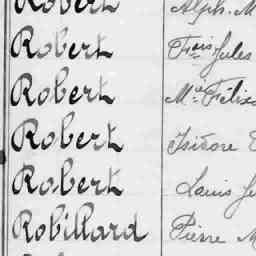 Robert Alph. M
Robert Fçois Jules
Robert Mce Félix
Robert Isidore
Robert Louis Ju
Robillard Pierre M